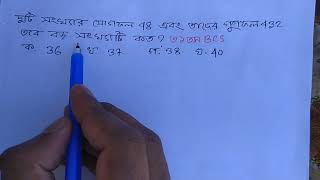 দুটি সংখ্যার যোগফল 48 এবং তাদের গুণফল 432
তবে বড় সংখ্যাটি কত? ৩১তম BCS
ক. 36 খ. 37 গ. 38 ঘ. 40